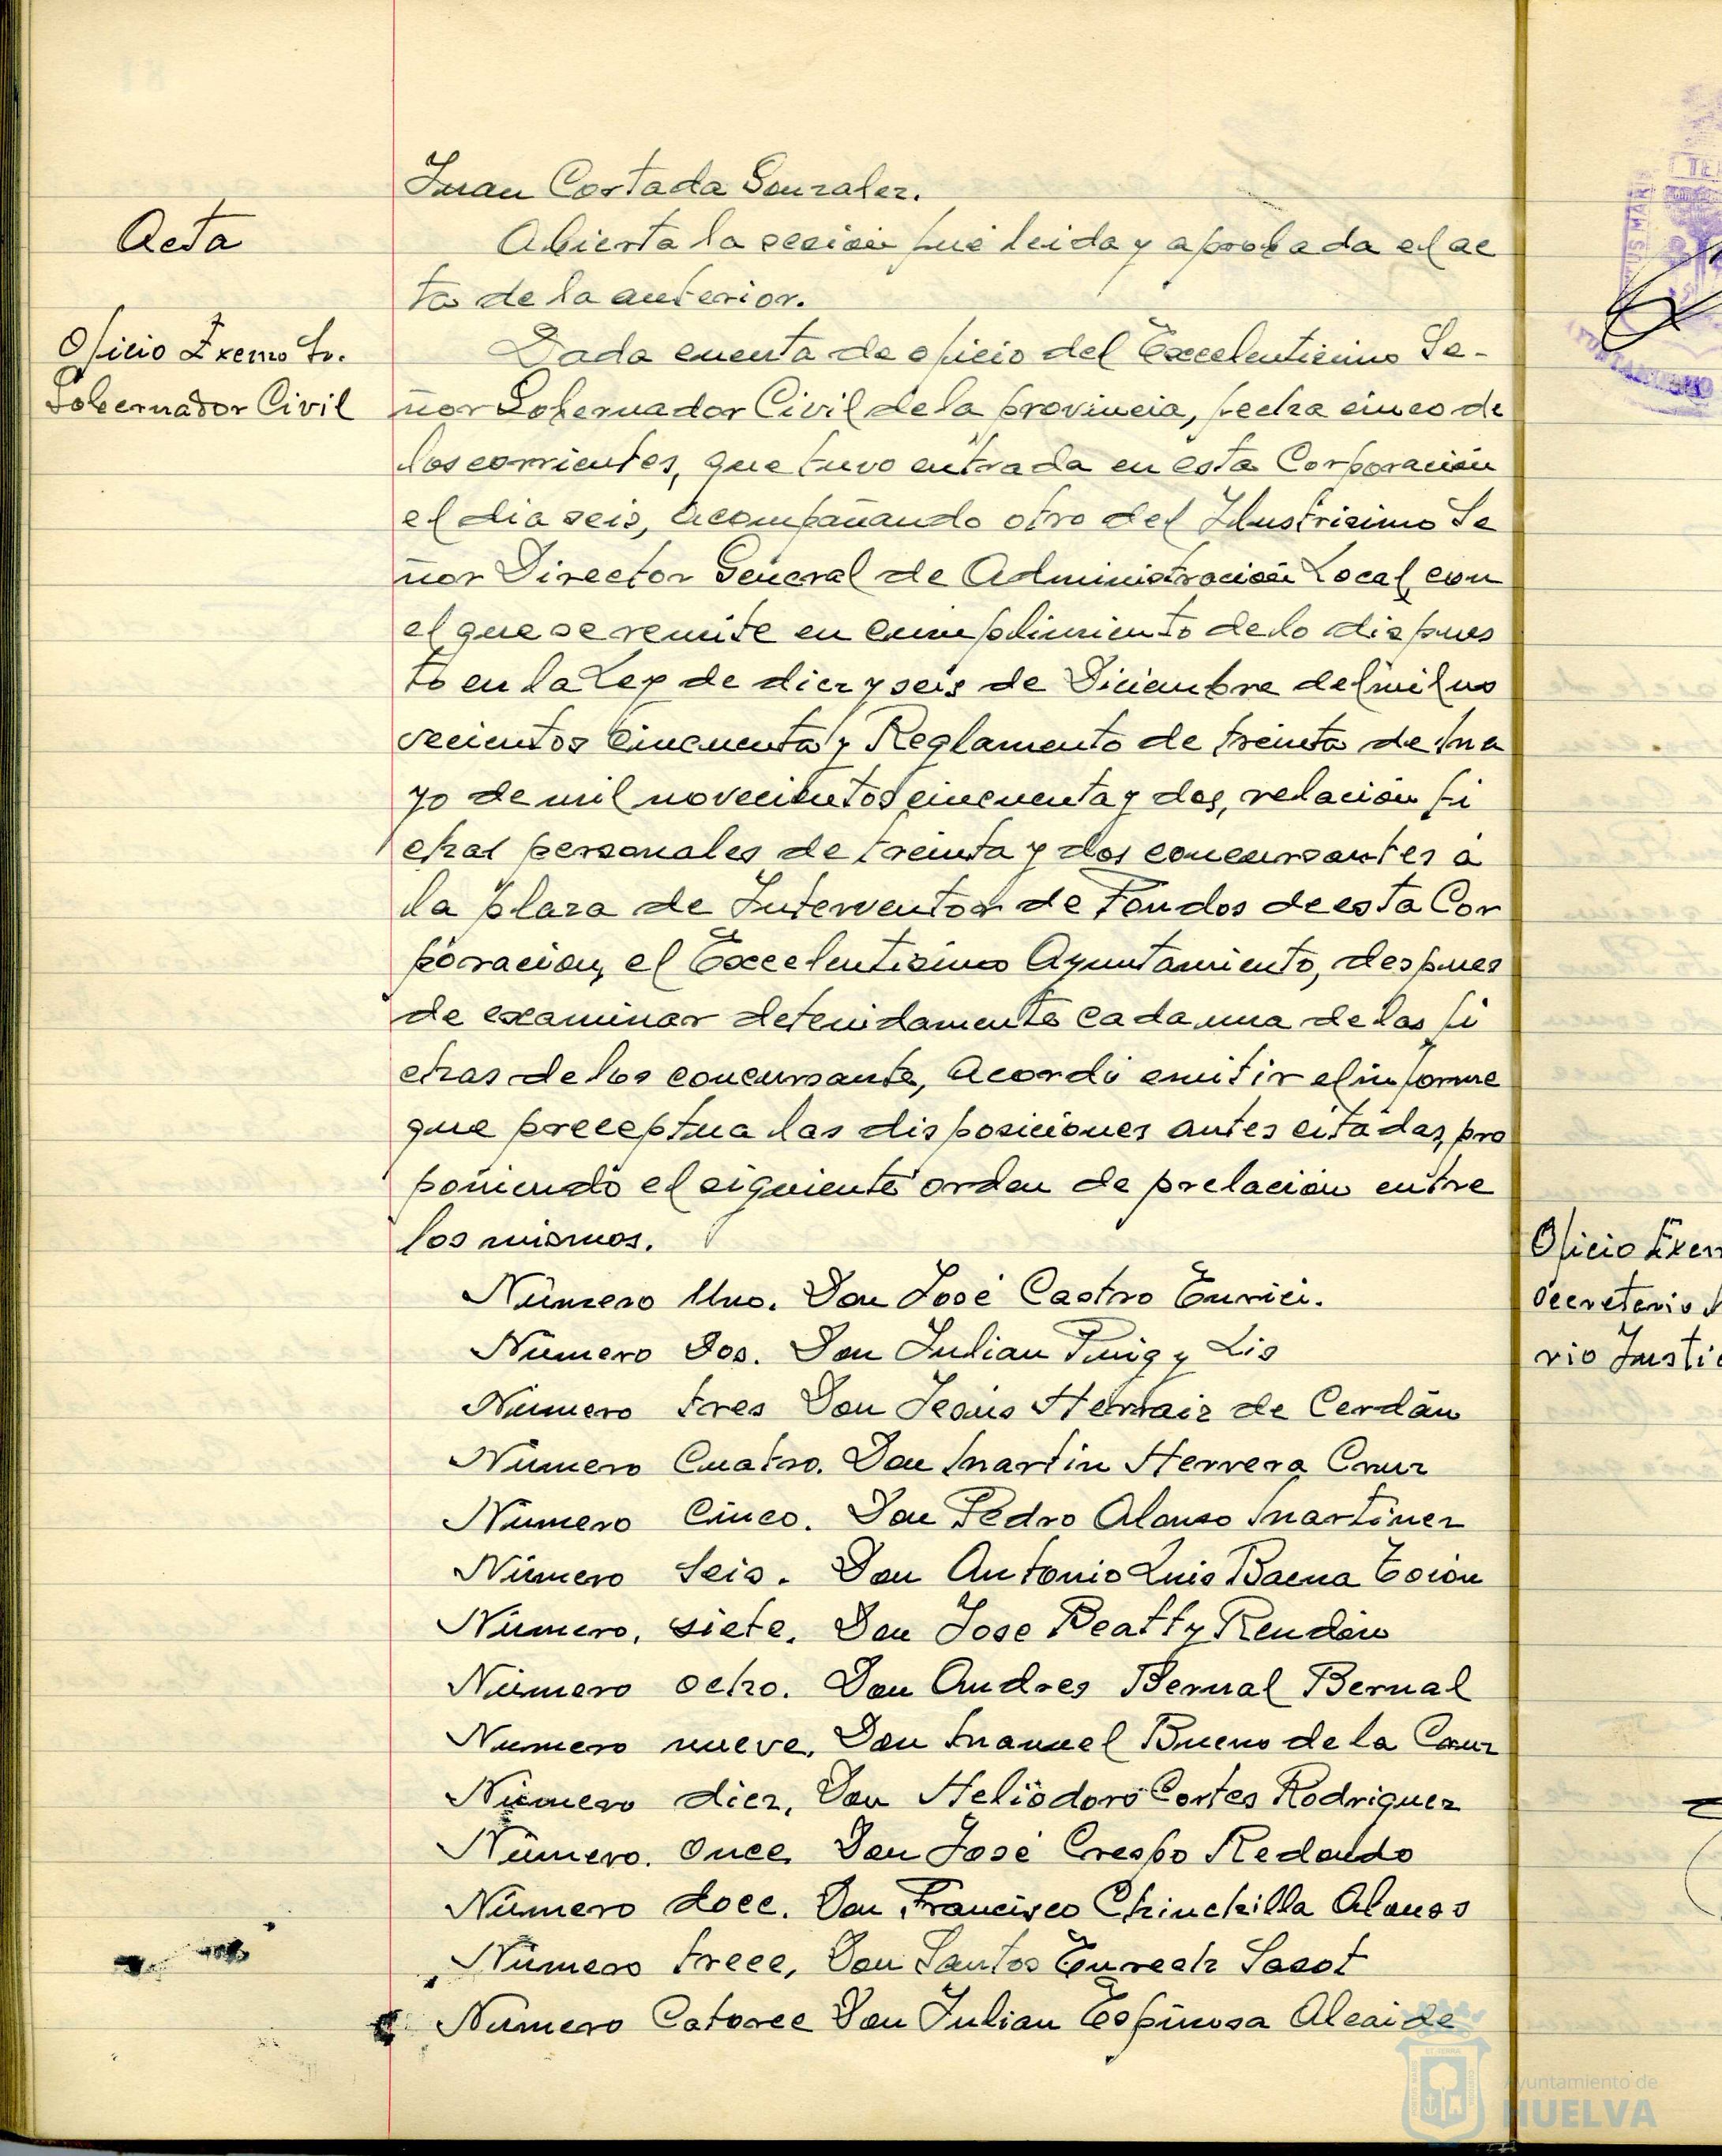 Juan Cortada Gonzalez.
Acta
Abierta la sesión fué leida y aprobada el ac
ta de la anterior.
Oficio Excmo Sr.
Gobernador Civil
Dada cuenta de oficio del Excelentisimo Se-
ñor Gobernador Civil de la provincia, fecha cinco de
los corrientes, que tuvo entrada en esta Corporación
el dia seis, acompañando otro del Ilustrisimo Se
ñor Director General de Administración Local, con
el que se remite en cumplimiento de lo dispues
to en la Ley de diez y seis de Diciembre del mil no
vecientos cincuenta y Reglamento de treinta de Ma
yo de mil novecientos cincuenta y dos, relación fi
chas personales de treinta y dos concursantes a
la plaza de Interventor de Fondos de esta Cor
poracion, el Excelentisimo Ayuntamiento, despues
de examinar detenidamente cada una de las fi
chas de los concursante, acordó emitir el informe
que preceptua las disposiciones antes citadas, pro
poniendo el siguiente orden de prelación entre
los mismos.
Número Uno. Don José Castro Eurici.
Número Dos. Don Julian Puig y Lis
Número tres Don Jesús Herraiz de Cerdán
Número Cuatro. Don Martin Herrera Cruz
Número Cinco. Don Pedro Alonso Martinez
Número Seis. Don Antonio Luis Baena Tocón
Número, siete. Don Jose Beatty Rendón
Número ocho. Don Andres Bernal Bernal
Numero nueve. Don Manuel Bueno de la Cruz
Número diez, Don Heliodoro Cortes Rodriguez
Número. Once. Don José Crespo Redondo
Número doce. Don Francisco Chinchilla Alonso
Número trece, Don Santos Enrech Sasot
Numero Catorce Don Julian Espinosa Alcaide
Oficio
Secretario
rio
Ayuntamiento de
HUELVA